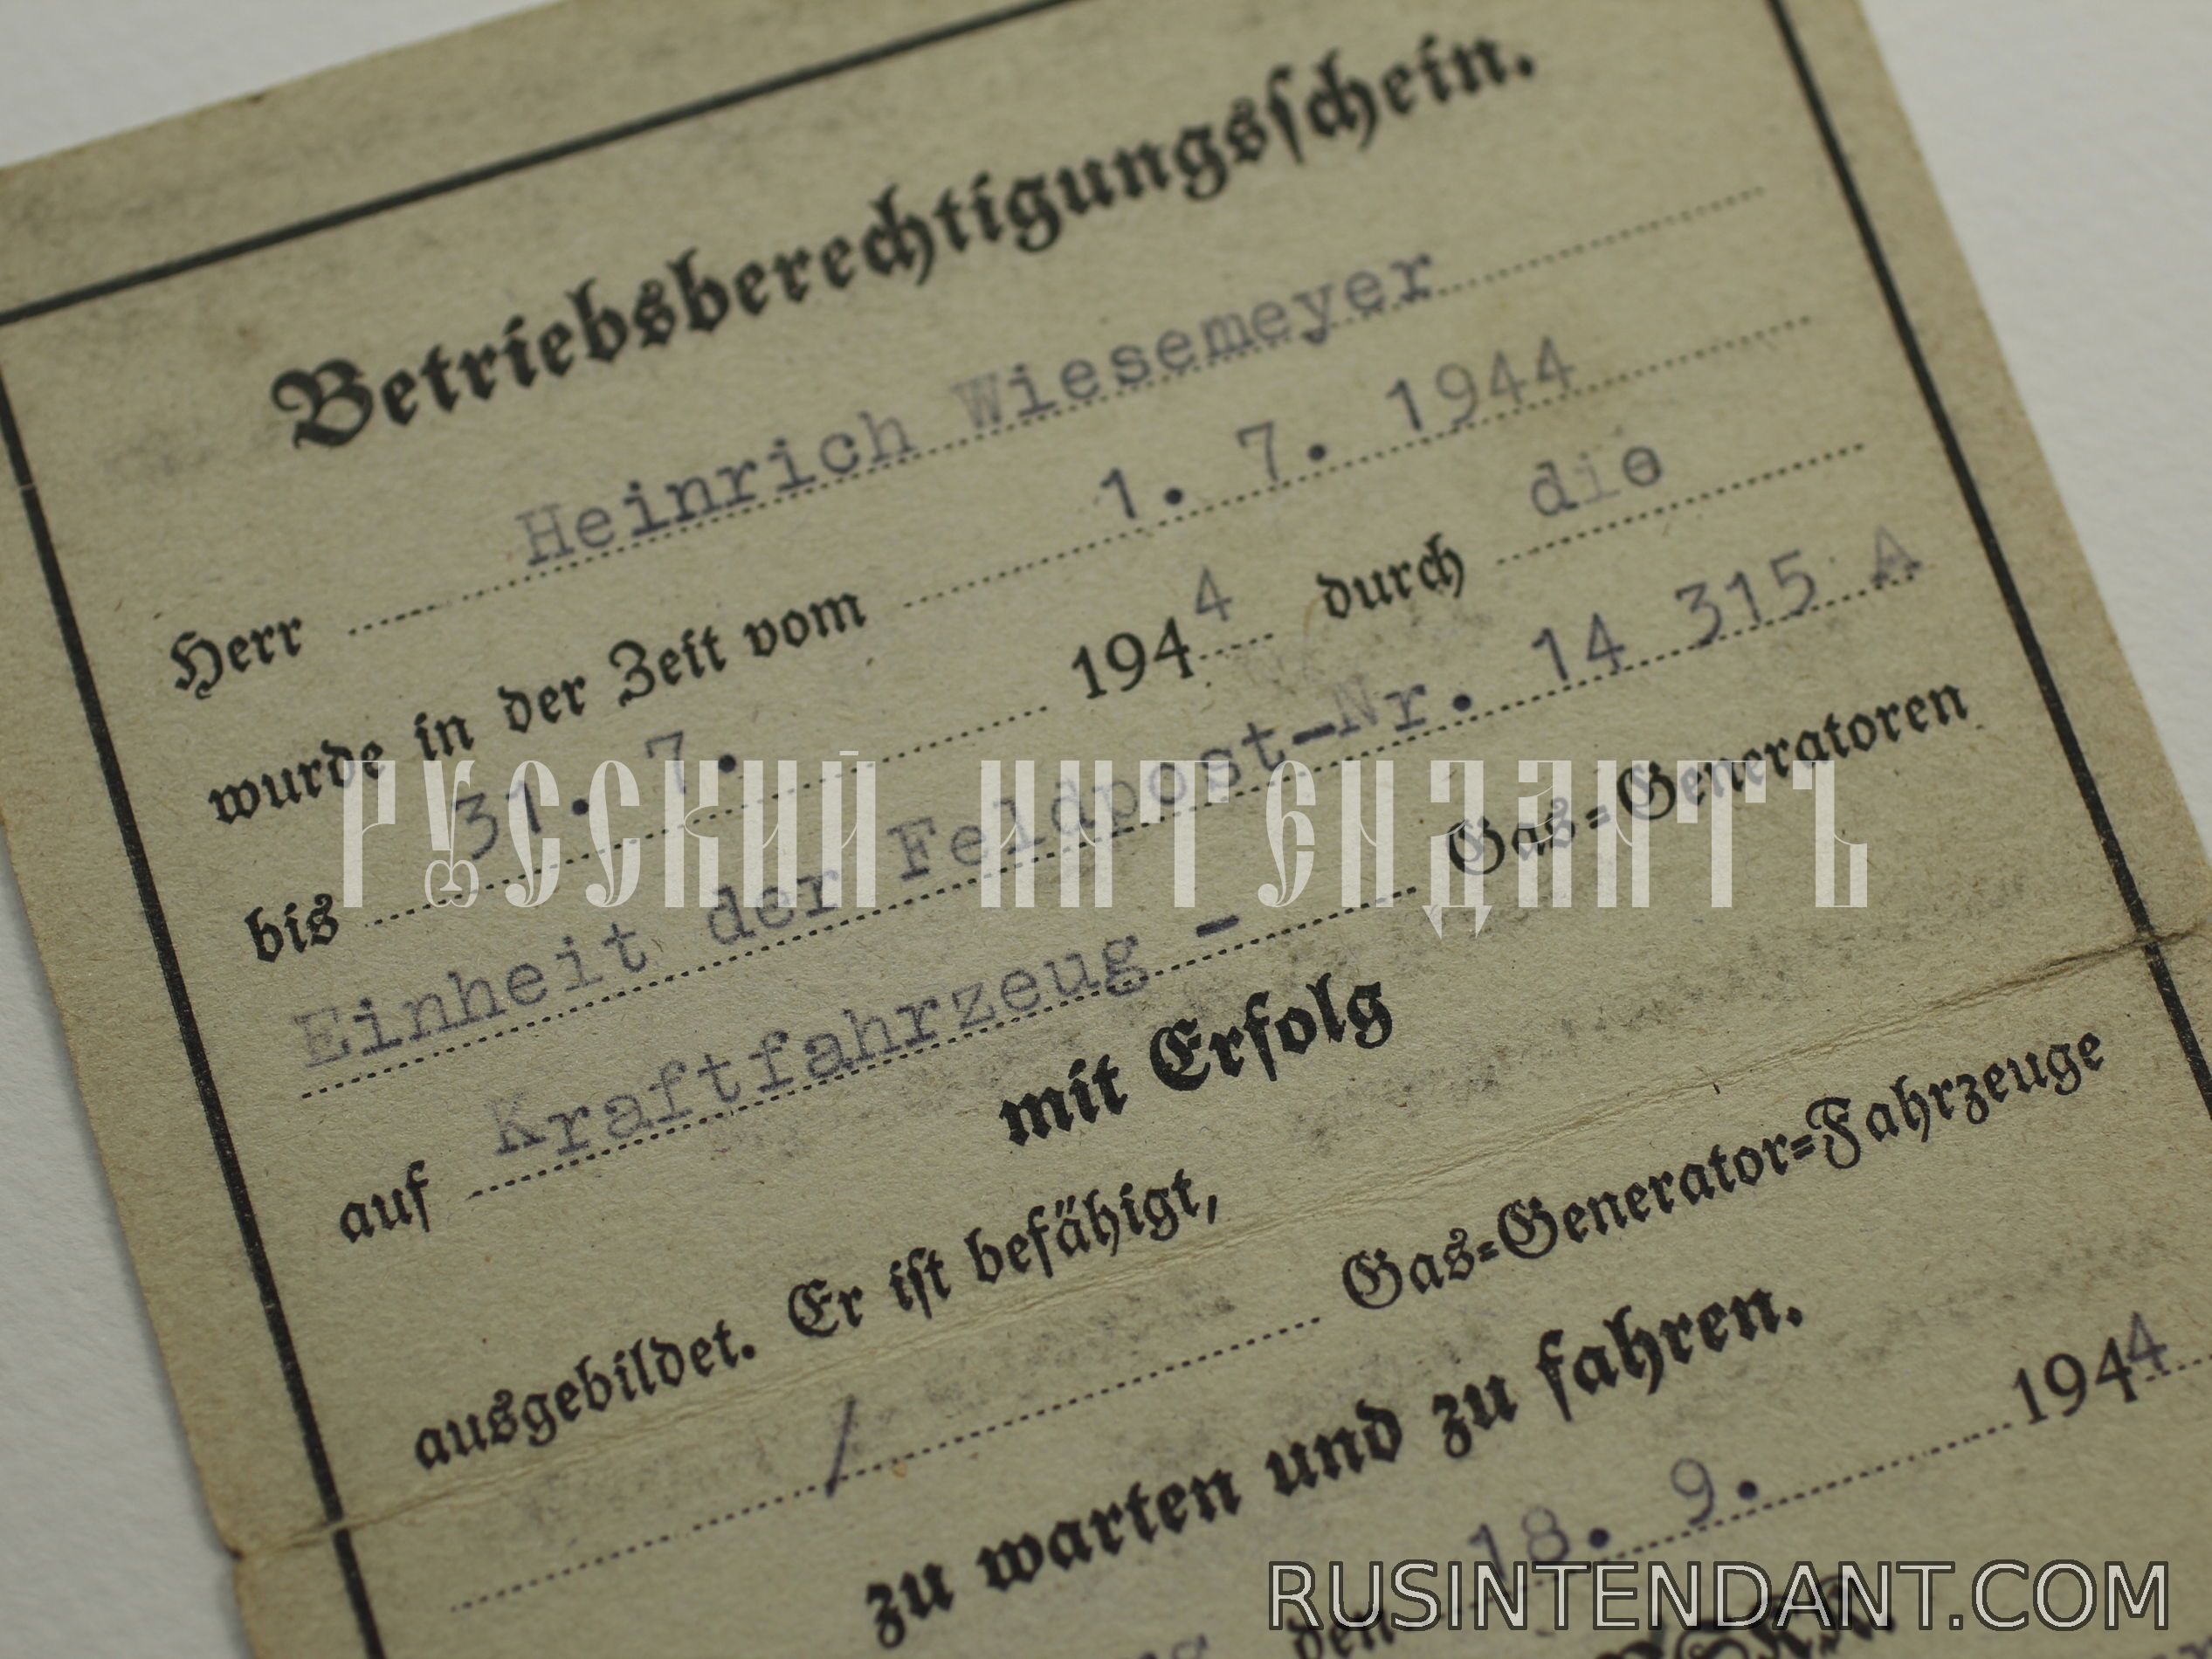 Betriebsberechtigungsschein.
Herr Heinrich Wiesemeyer
wurde in der Zeit vom 1. 7. 1944
bis 31. 7. 1944 durch die
Einheit der Feldpost-Nr. 14 315 A
auf Kraftfahrzeug - Gas-Generatoren
mit Erfolg
ausgebildet. Er ist befähigt,
/ Gas-Generator-Fahrzeuge
zu warten und zu fahren.
den 18. 9. 1944
РУССКИЙ ИНТЕНДАНТЪ
RUSINTENDANT.COM